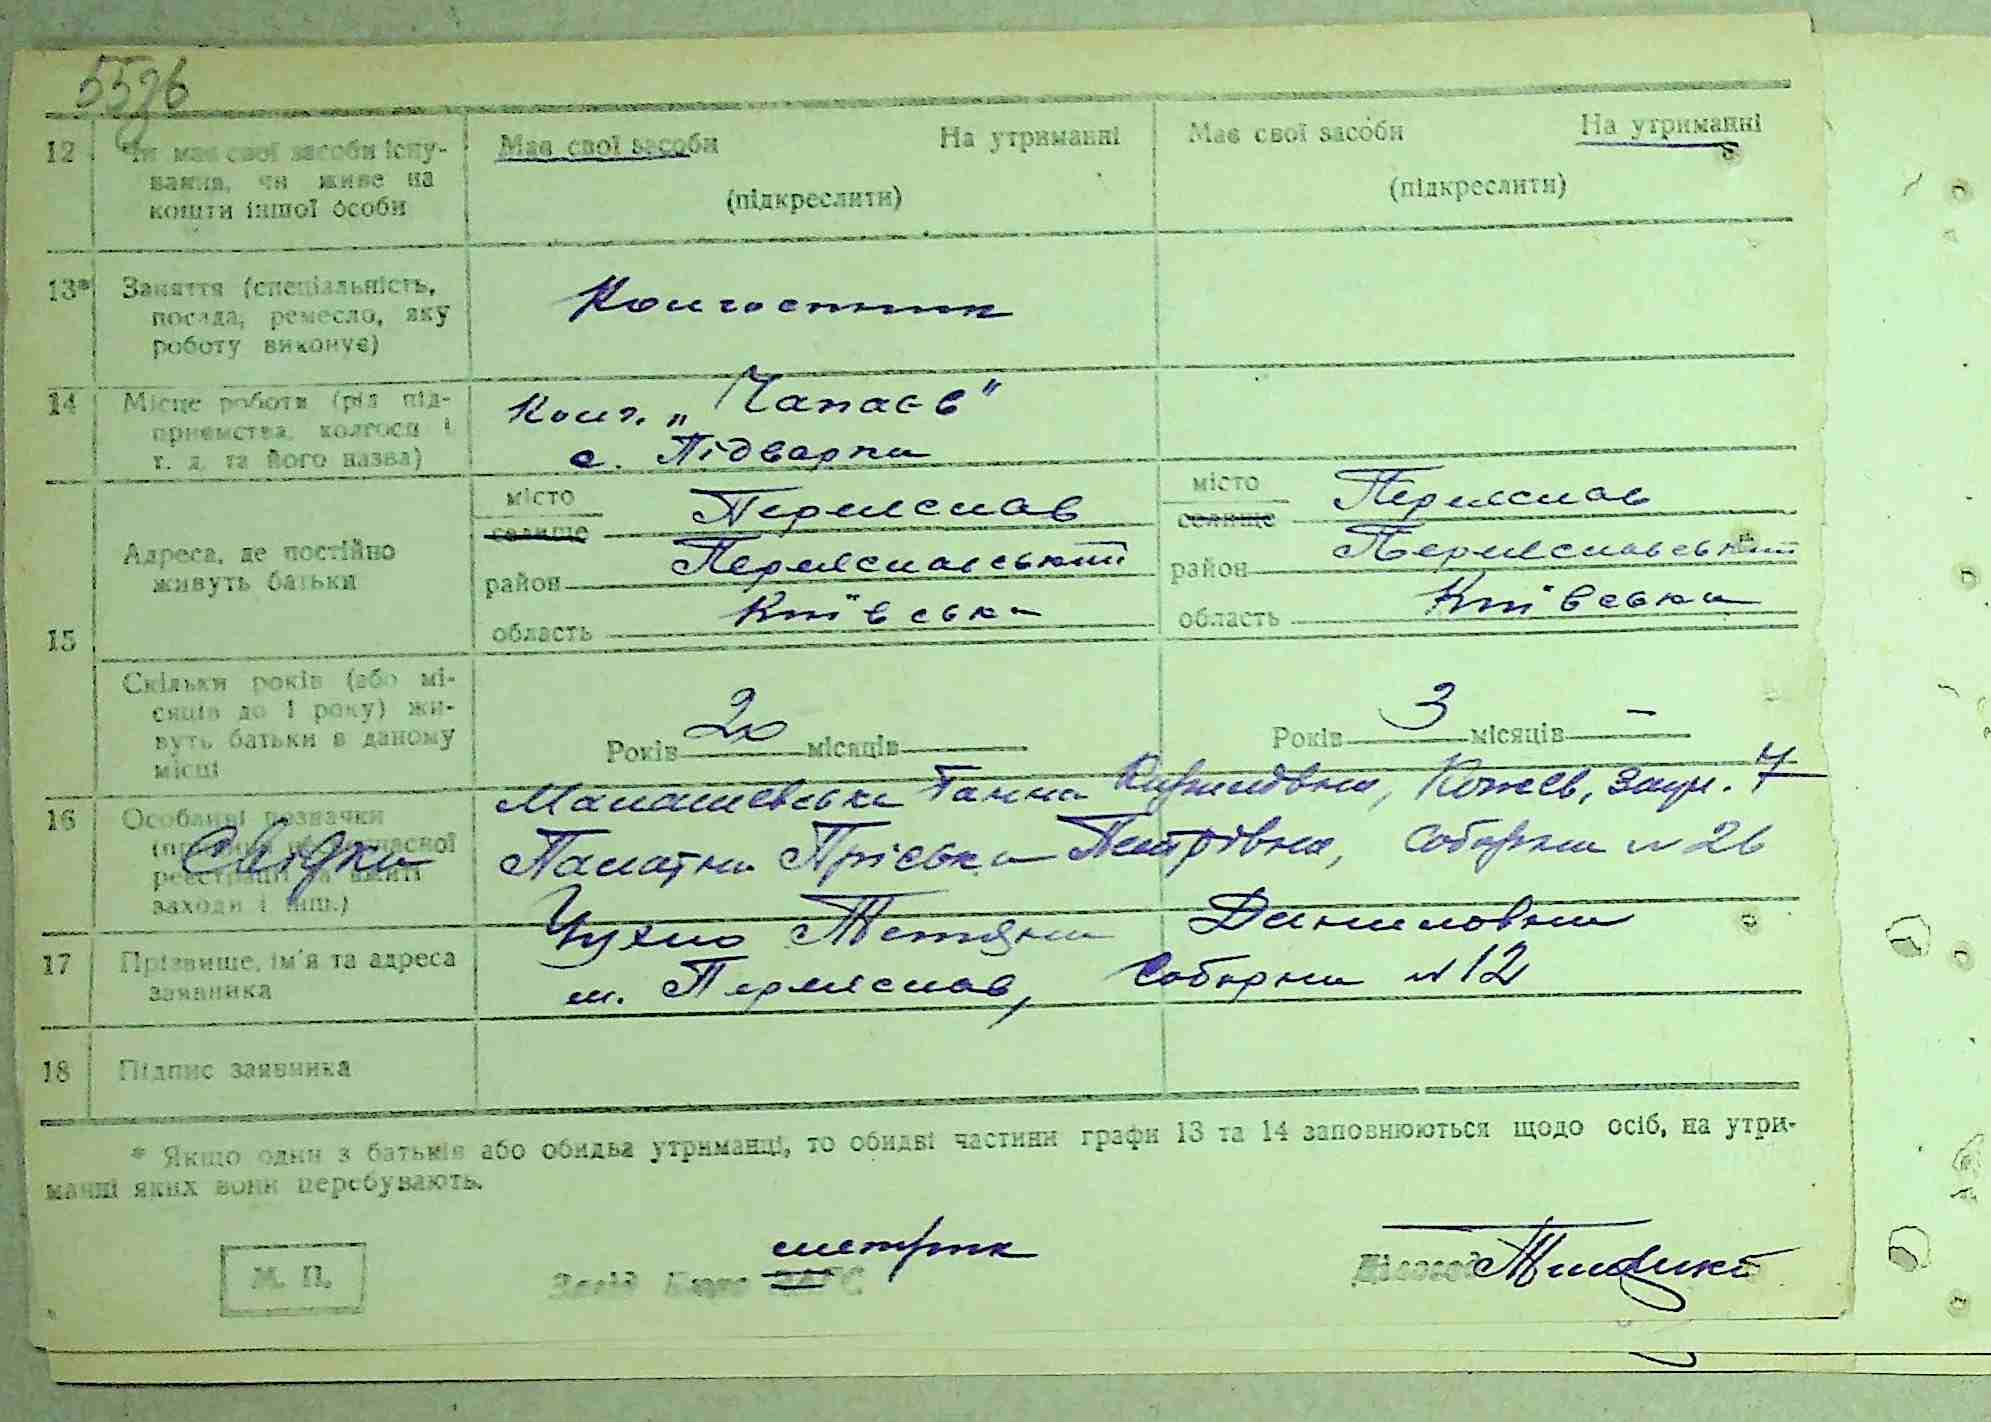 55зв
12 Чи має свої засоби існу-
вання, чи живе на
кошти іншої особи
Має свої засоби На утриманні
(підкреслити)
Має свої засоби На утриманні
(підкреслити)
13* Заняття (спеціальність,
посада, ремесло, яку
роботу виконує)
Колгоспник
14 Місце роботи (рід під-
приємства, колгосп і
т. д. та його назва)
Колг. „Чапаєв"
с. Підварки
15
Адреса, де постійно
живуть батьки
місто
селище Переяслав
район Переяславський
область Київська
місто
селище Переяслав
район Переяславський
область Київська
Скільки років (або мі-
сяців до 1 року) жи-
вуть батьки в даному
місці
Років 20 місяців
Років 3 місяців —
16 Особливі позначки
реєстрації та вжиті
заходи і інш.)
Свідки
Ганна Кирилівна, 7
Палатна Пріська Петрівна, Соборна № 26
17 Прізвище, ім'я та адреса
заявника
Чухно Тетяна Даниловна
м. Переяслав, Соборна № 12
18 Підпис заявника
* Якщо один з батьків або обидва утриманці, то обидві частини графи 13 та 14 заповнюються щодо осіб, на утри-
манні яких вони перебувають.
М. П.
метрик
Завід Бюро ЗАГС
Діловод